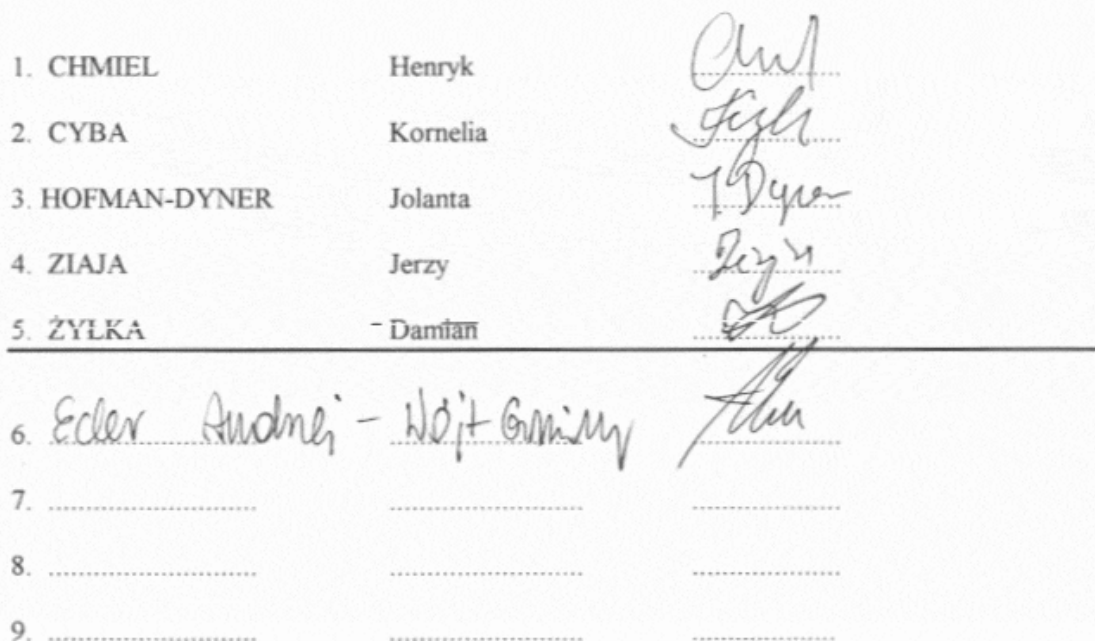 1. CHMIEL Henryk
2. CYBA Kornelia
3. HOFMAN-DYNER Jolanta J Dyner
4. ZIAJA Jerzy
5. ŻYŁKA - Damian
6. Eder Andrzej - Wójt Gminy
7.
8.
9.